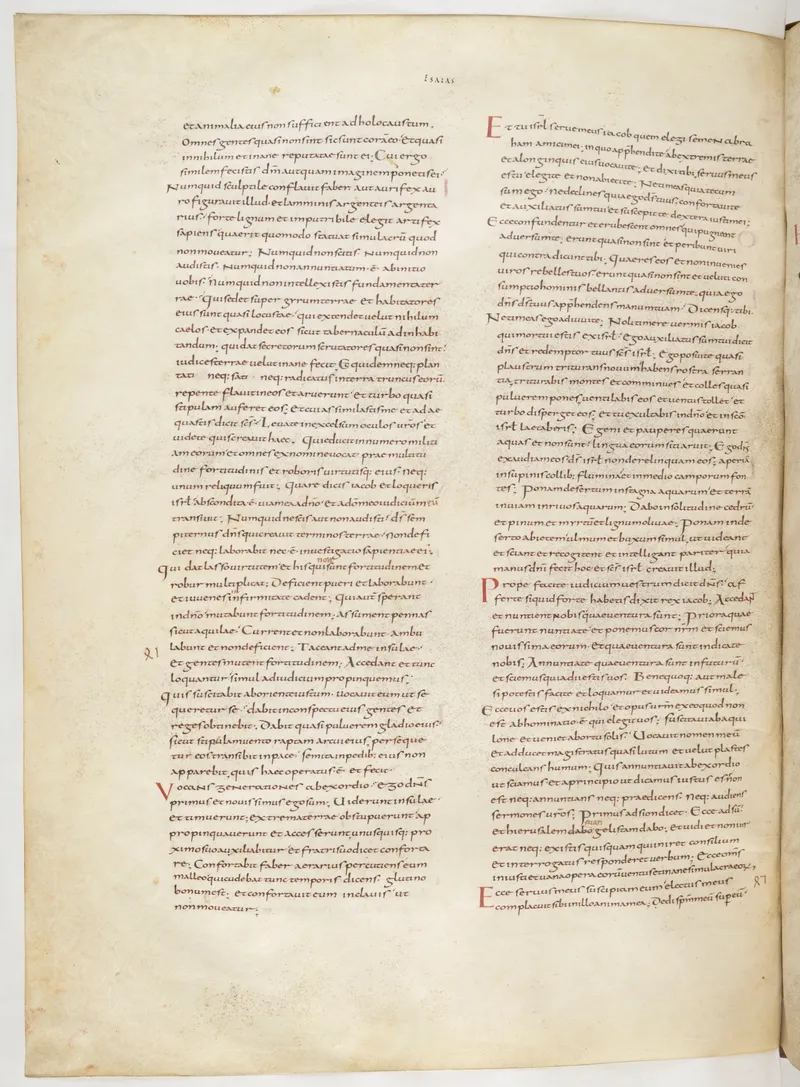 ISAIAS
et animalia eius non sufficient ad holocaustum.
Omnes gentes quasi non sint sic sunt coram eo et quasi
in nihilum et inane reputatae sunt ei; Cui ergo
similem fecistis dm̄ aut quam imaginem ponetis ei;
Numquid sculpale conflavit faber aut aurifex au
ro figuravit illud et lamminis argenteis argenta
rius; forte lignum et imputribile elegit artifex
sapiens quaerit quomodo statuat simulacrū quod
non moveatur; Numquid non scitis Numquid non
audistis Numquid non annuntiatum ē ab initio
vobis Numquid non intellexistis fundamenta ter
rae Qui sedet super gyrum terrae et habitatores
eius sunt quasi locustae qui extendet velut nihilum
caelos et expandet eos sicut tabernaculū ad inhabi
tandum; qui dat secretorum scrutatores quasi non sint
iudices terrae velut inane fecit; Et quidem neq: plan
tati neq: sati neq: radicatus in terra truncus eorū
repente flavit in eos et aruerunt et turbo quasi
stipulam auferet eos; Et cui assimilastis me et adae
quastis dicit scs; Levate in excelsum oculos vr̄os et
videte quis creavit haec. Qui educit in numero militi
am eorum et omnes ex nomine vocat prae multitu
dine fortitudinis et roboris virtutisq: eius neq:
unum reliquum fuit; Quare dicis iacob et loqueris
isrl̄ abscondita ē via mea a dn̄o et a dō meo iudiciū meū
transivit; Numquid nescis aut non audisti ds̄ sem
piternus dn̄s qui creavit terminos terrae non defi
ciet neq: laborabit nec ē investigatio sapientiae ei;
Qui dat lasso virtutem et his qui non sunt fortitudinem et
robur multiplicat; Deficient pueri et laborabunt
et iuvenes in infirmitate cadent; Qui aut sperant
in dn̄o mutabunt fortitudinem; Assument pennas
sicut aquilae Current et non laborabunt ambu
labunt et non deficient; Taceant ad me insulae
et gentes mutent fortitudinem; Accedant et tunc
loquantur simul ad iudicium propinquemus;
Quis suscitabit ab oriente iustum vocavit eum ut se
queretur se dabit in conspectu eius gentes et
reges obtinebit; Dabit quasi pulverem gladio eius
sicut stipulam vento raptam arcui eius; perseque
tur eos transibit in pace semita in pedib: eius non
apparebit; quis haec operatus ē et fecit
Vocans generationes ab exordio Ego dn̄s
primus et novissimus ego sum; Viderunt insulae
et timuerunt; extrema terrae obstupuerunt ap
propinquaverunt et accesserunt unusquisq: pro
ximo suo auxiliabitur et fratri suo dicet conforta
re; Confortabit faber aerarius percutiens eum
malleo qui cudebat tunc temporis dicens glutino
bonum est; et confortavit eum in clavis ut
non moveatur;
Et tu isrl̄ serve meus iacob quem elegi semen abra
ham amici mei; in quo apphendi te ab extremis terrae
et a longinquis eius vocavi te; et dixi tibi servus meus
es tu elegi te et non abieci te; Ne timeas quia tecum
sum ego ne declines quia ego ds̄ tuus; confortavi te
et auxiliatus sum tui et suscepit te dextera iusti mei;
Ecce confundentur et erubescent omnes qui pugnant
adversum te; erunt quasi non sint et peribunt viri
qui contradicunt tibi; Quaeres eos et non invenies
viros rebelles tuos erunt quasi non sint et veluti con
sumptio hominis bellantis adversum te. quia ego
dn̄s ds̄ tuus apphendens manum tuam Dicensq: tibi
Ne timeas ego adiuvi te; Noli timere vermis iacob
qui mortui estis ex isrl̄ ego auxiliatus sum tui dicit
dn̄s et redemptor tuus scs isrl̄; Ego posui te quasi
plaustrum triturans novum habens rostra serran
tia; triturabis montes et comminues et colles quasi
pulverem pones ventilabis eos et ventus tollet et
turbo disperget eos; et tu exultabis in dn̄o et in scō
isrl̄ laetaberis; Egeni et pauperes quaerunt
aquas et non sunt lingua eorum siti aruit; Ego dn̄s
exaudiam eos ds̄ isrl̄ non derelinquam eos; aperiā
in supinis collib: flumina et in medio camporum fon
tes; Ponam desertum in stagna aquarum et terrā
inviam in rivos aquarum; Dabo in solitudine cedrū
et pinum et myrtū et lignum olivae; Ponam in de
serto abietem ulmum et buxum simul, ut videant
et sciant et recogitent et intellegant pariter quia
manus dn̄i fecit hoc et scs isrl̄ creavit illud;
Prope facite iudicium vestrum dicit dn̄s af
ferte si quid forte habetis dixit rex iacob; Accedant
et nuntient nobis quae ventura sunt; Priora quae
fuerunt nuntiate et ponemus cor nr̄m et sciemus
novissima eorum et quae ventura sunt indicate
nobis; Annuntiate quae ventura sunt in futurū
et sciemus quia dii estis vos; Bene quoq: aut male
si potestis facite et loquamur et videamus simul;
Ecce vos estis ex nihilo et opus vr̄m ex eo quod non
est abhominatio ē qui elegit vos; suscitavi ab aqui
lone et veniet ab ortu solis Vocavit nomen meū
et adducet magistratus quasi lutum et velut plastes
conculcans humum; Quis annuntiavit ab exordio
ut sciamus et a principio ut dicamus iustus es non
est neq: annuntians neq: praedicens neq: audiens
sermones vr̄os; Primus ad sion dicet Ecce adsū
et hierusalem evangelistam dabo; et vidi et non erat
erat neq: ex istis quisquam qui iniret consilium
et interrogatus responderet verbum; Ecce om̄s
iniusti et vana opera eorū ventus et inane simulacra eorū;
Ecce servus meus suscipiam eum electus meus
complacuit sibi in illo anima mea; Dedi spm̄ meū super eū